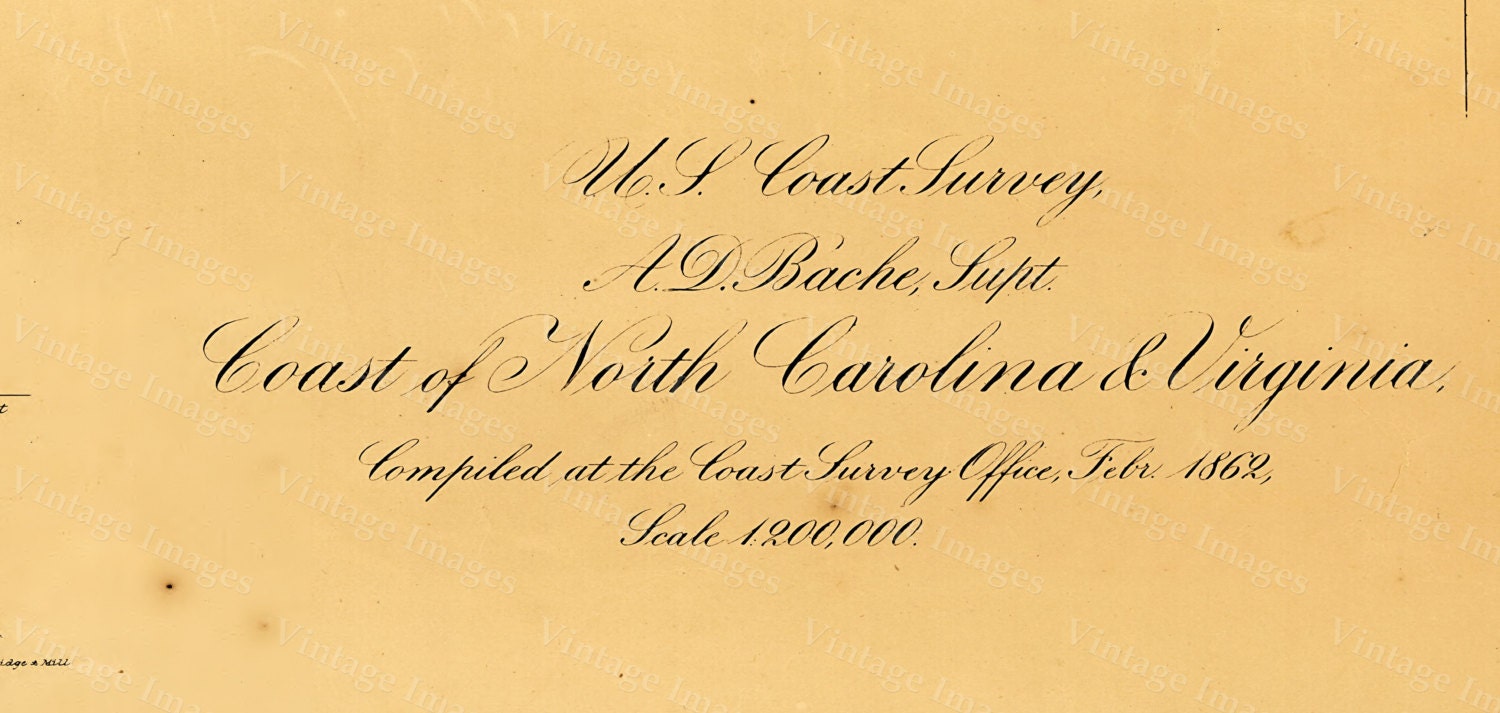 U.S. Coast Survey,
A.D. Bache, Supt.
Coast of North Carolina & Virginia,
Compiled at the Coast Survey Office, Febr. 1862,
Scale 1:200,000.
& Mill
Vintage Images